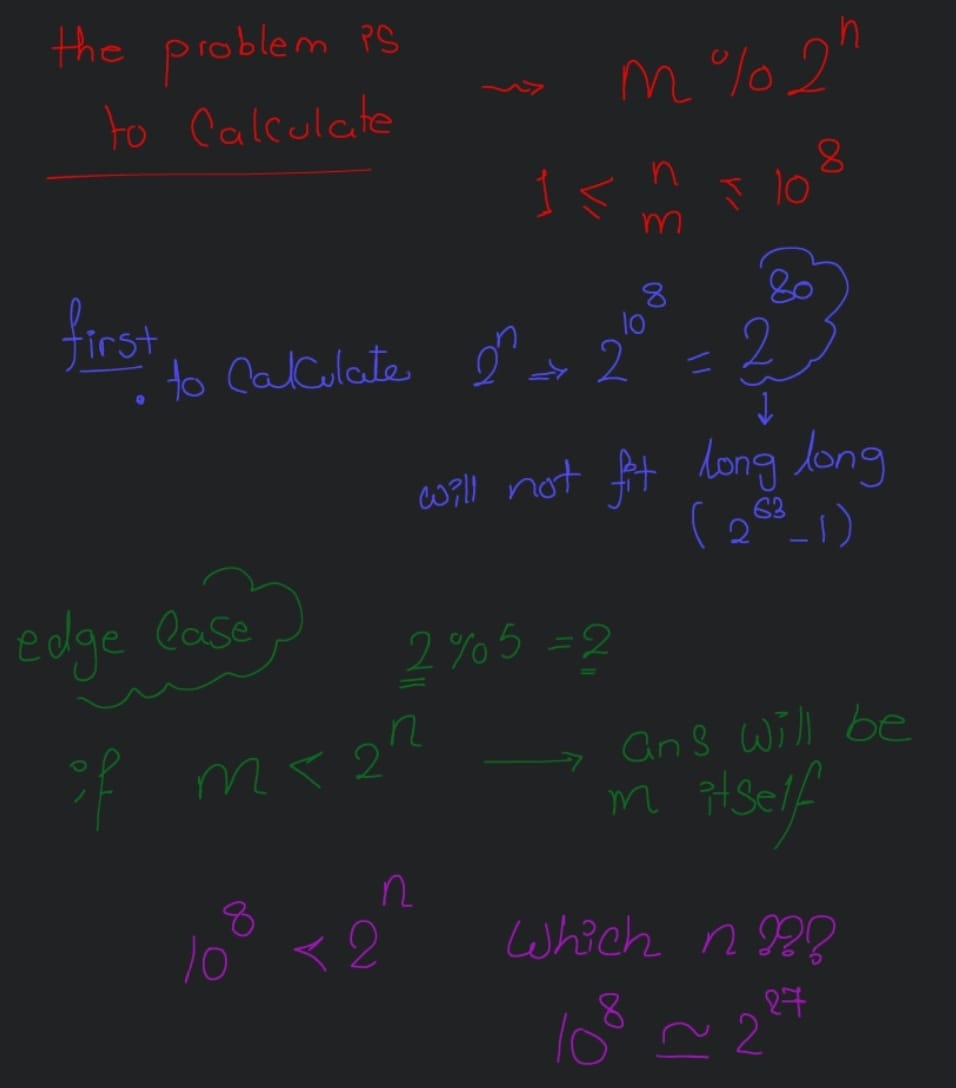 the problem is
to Calculate ⇝ m % 2^n
1 ≤ n, m ≤ 10^8
first
to Calculate 2^n ⇒ 2^10^8 = 2^80
↓
will not fit long long
(2^63 - 1)
edge Case
2 % 5 = 2
if m < 2^n → ans will be
m itself
10^8 < 2^n which n ???
10^8 ≃ 2^27